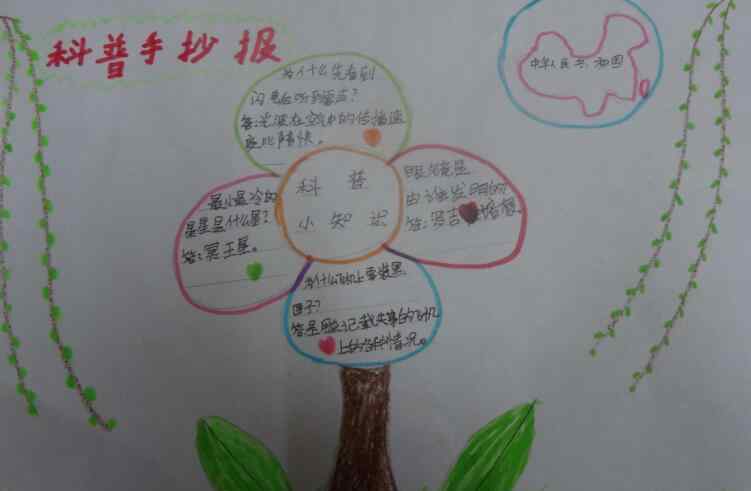 科普手抄报
中华人民共和国
为什么先看到
闪电后听到雷声?
答:光波在空中的传播速
度比声快。
科普
小知识
眼镜是
由谁发明的
答:罗吉 培根。
最小最冷的
星星是什么星?
答:冥王星。
为什么飞机上要装黑
匣子?
答:是用来记载失事的飞机
上的各种情况。